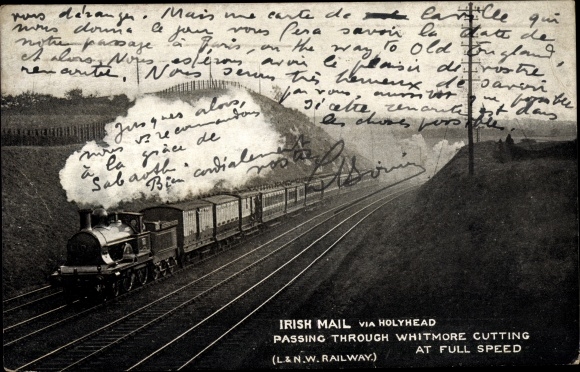 vous déranger. Mais une carte de la ville qui
nous donna le jour vous fera savoir la date de
notre passage à Paris, on the way to Old England,
et alors, nous espérons avoir le plaisir de votre
rencontre. Nous serons très heureux de savoir
par vous, aussitôt que possible
si cette rencontre est dans
les choses possibles.
Jusques alors,
nous vs recommandons
à la grâce de
Sabaoth.
Bien cordialement
vostre
IRISH MAIL VIA HOLYHEAD
PASSING THROUGH WHITMORE CUTTING
AT FULL SPEED
(L & N.W. RAILWAY.)